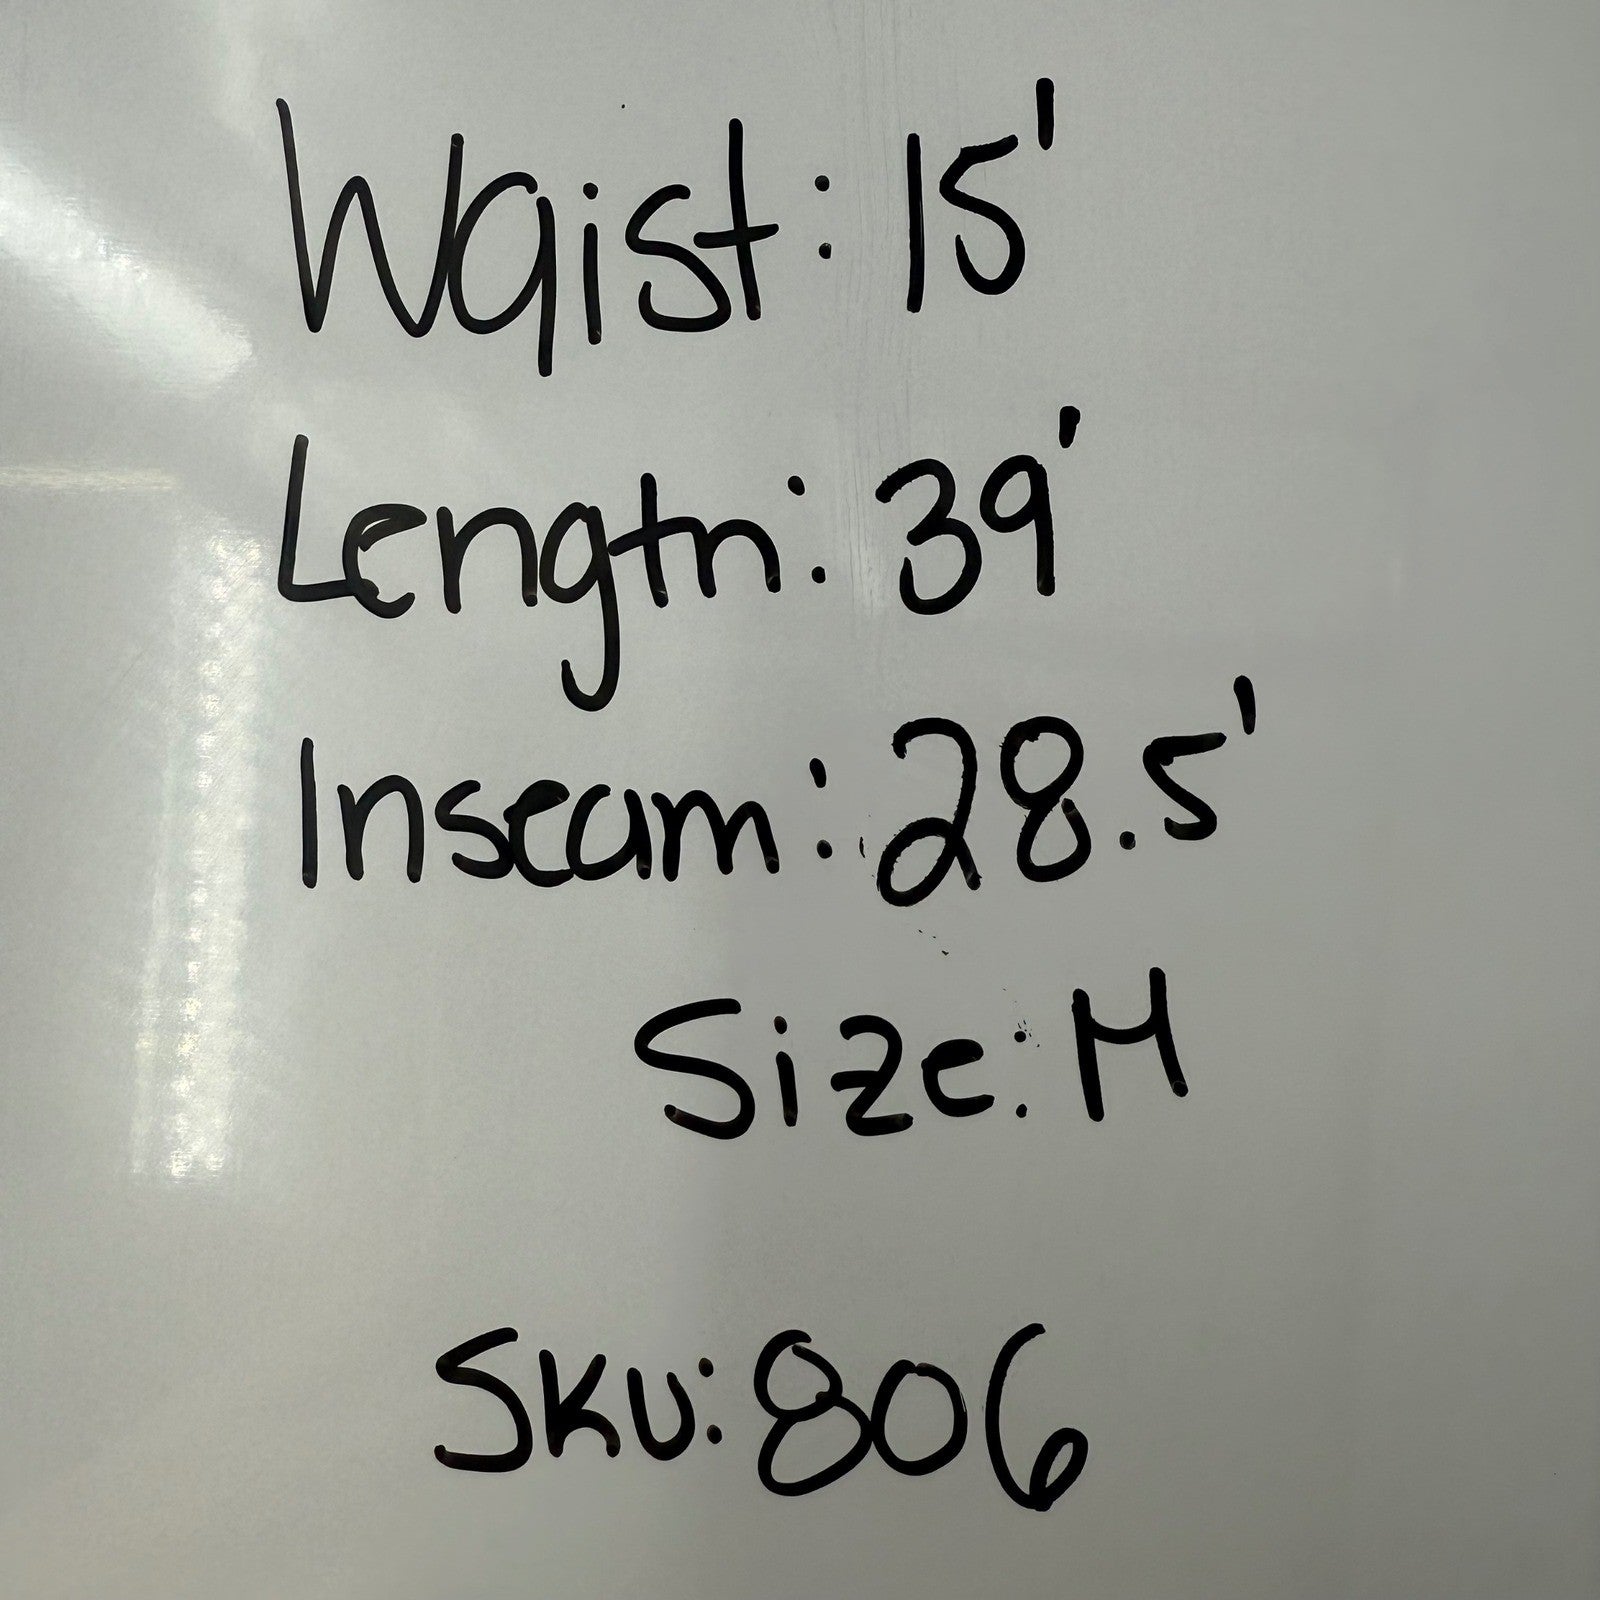 Waist: 15'
Length: 39'
Inseam: 28.5'
Size: M
SKU: 806